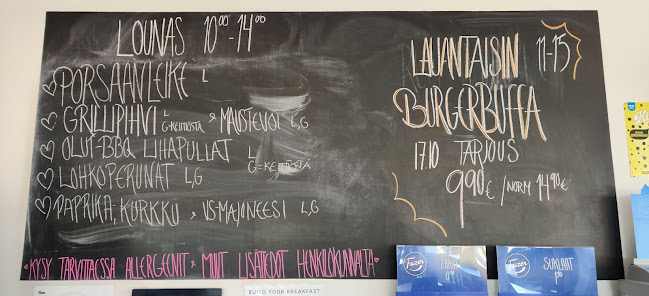 LOUNAS 10⁰⁰-14⁰⁰
♡ PORSAANLEIKE L
♡ GRILLIPIHVI L G-KEITTIÖSTÄ & MAUSTEVOI L,G
♡ OLUT-BBQ LIHAPULLAT L G-KEITTIÖSTÄ
♡ LOHKOPERUNAT L,G
♡ PAPRIKA-KURKKU & US-MAJONEESI L,G
KYSY TARVITTAESSA ALLERGEENIT & MUUT LISÄTIEDOT HENKILÖKUNNALTA
LAUANTAISIN 11-15
BURGERBUFFA
17.10 TARJOUS
9,90€ /NORM 14,90€
Fazer
Fazer SUKLAAT
BUILD YOUR BREAKFAST